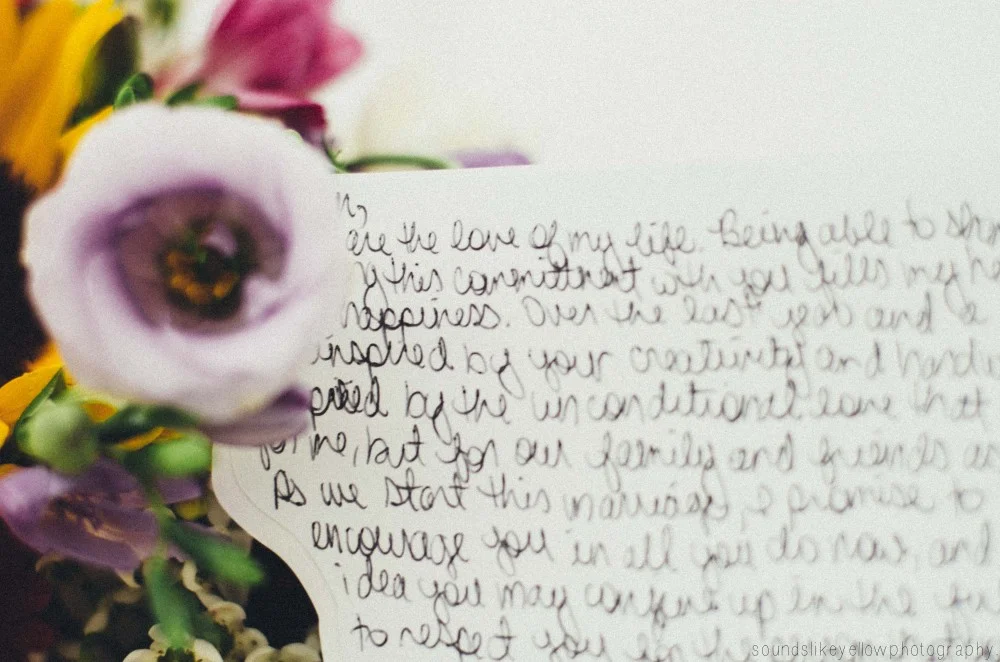 are the love of my life. Being able to
this commitment with you fills my
happiness. Over the last year and a
inspired by your creativity and
by the unconditional love that
for me, but for our family and friends as
As we start this marriage, I promise to
encourage you in all you do now, and
idea you may conjure up in the
to respect you for the
soundslikeyellowphotography